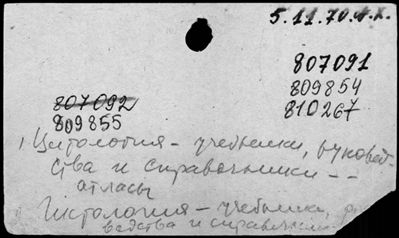 5.11.70 А.Х.
807091
809854
810267
807092
809855
1) Цитология - учебники, руковод-
ства и справочники --
атласы
Гистология - учебники, ру
водства и справочник